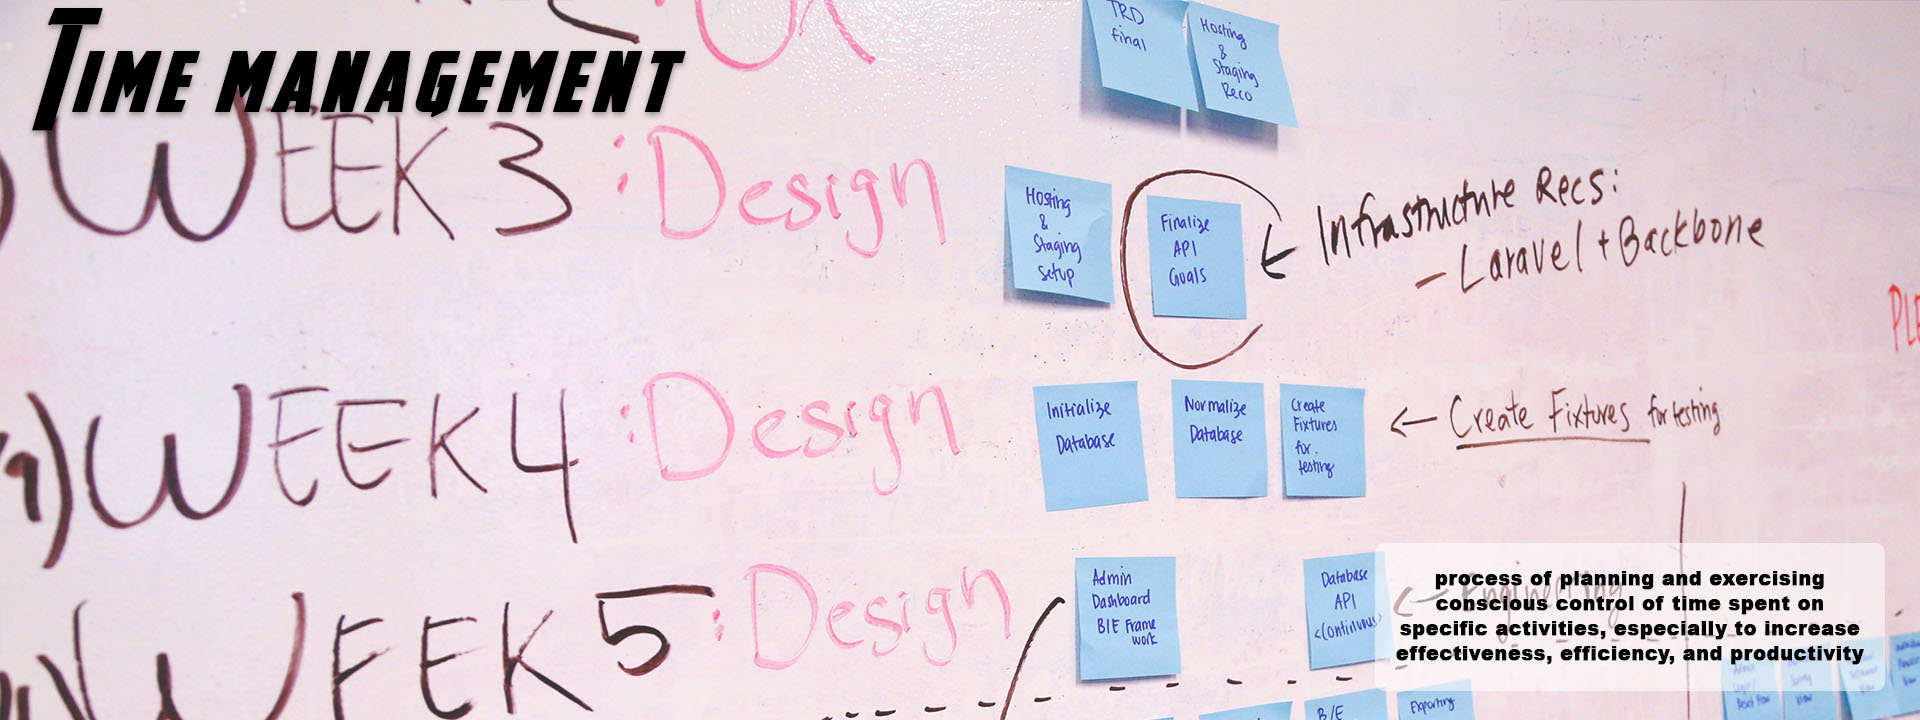 TIME MANAGEMENT
TRD
final
Hosting
&
Staging
Reco
WEEK 3 : Design
Hosting
&
Staging
Setup
Finalize
API
Goals
← Infrastructure Recs:
- Laravel + Backbone
4) WEEK 4 : Design
Initialize
Database
Normalize
Database
Create
Fixtures
for.
testing
← Create Fixtures for testing
WEEK 5 : Design
Admin
Dashboard
B/E Frame
work
Database
API
<Continuous>
← Engineering
process of planning and exercising
conscious control of time spent on
specific activities, especially to increase
effectiveness, efficiency, and productivity
B/E
Exporting